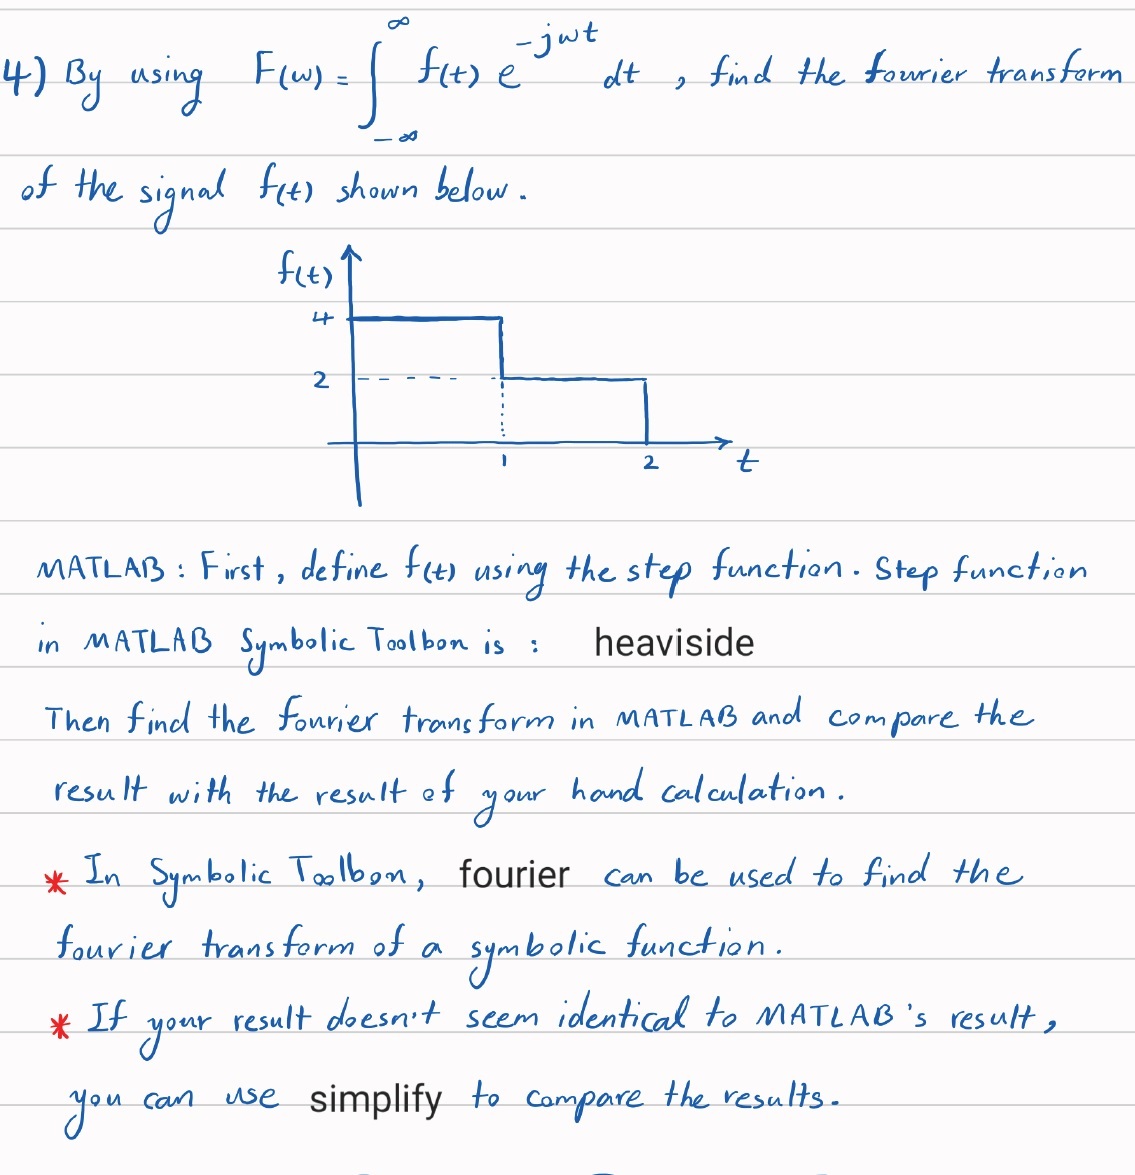 4) By using F(w) = ∫_{-∞}^{∞} f(t) e^{-jwt} dt , find the fourier transform
of the signal f(t) shown below.
f(t)
4
2
1 2 t
MATLAB : First, define f(t) using the step function. Step function
in MATLAB Symbolic Toolbox is : heaviside
Then find the fourier transform in MATLAB and compare the
result with the result of your hand calculation.
* In Symbolic Toolbox, fourier can be used to find the
fourier transform of a symbolic function.
* If your result doesn't seem identical to MATLAB's result,
you can use simplify to compare the results.